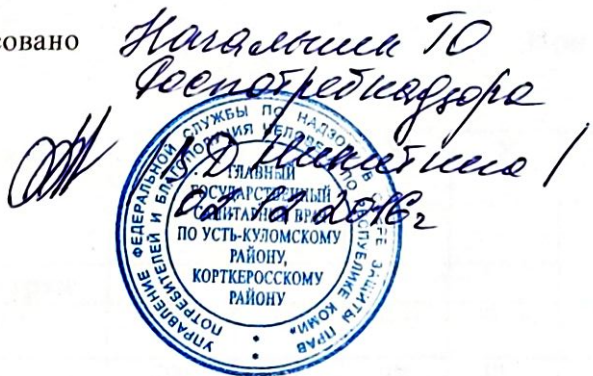 совано
Начальник ТО
Роспотребнадзора
В.Д. Никитина /
02.12.2016г
УПРАВЛЕНИЕ ФЕДЕРАЛЬНОЙ СЛУЖБЫ ПО НАДЗОРУ В СФЕРЕ ЗАЩИТЫ ПРАВ
ПОТРЕБИТЕЛЕЙ И БЛАГОПОЛУЧИЯ ЧЕЛОВЕКА ПО РЕСПУБЛИКЕ КОМИ
ГЛАВНЫЙ
ГОСУДАРСТВЕННЫЙ
САНИТАРНЫЙ ВРАЧ
ПО УСТЬ-КУЛОМСКОМУ
РАЙОНУ,
КОРТКЕРОССКОМУ
РАЙОНУ